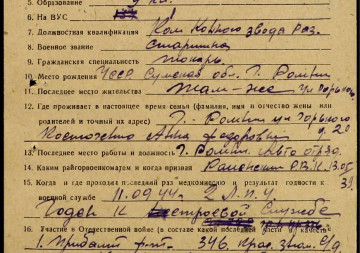 5. Образование
6. На ВУС
7. Должностная квалификация Ком. Конного взвода раз.
8. Военное звание старшина
9. Гражданская специальность токарь
10. Место рождения УССР Сумская обл. г. Ромны
11. Последнее место жительства там-же ул. Горького
12. Где проживает в настоящее время семья (фамилия, имя и отчество жены или
родителей и точный их адрес) г. Ромны ул. Горького
Анна Федоровна
13. Последнее место работы и должность г. Ромны
14. Каким райгорвоенкоматом и когда призван Роменский РВК
15. Когда и где проходил последний раз медкомиссию и результат годности к
военной службе 11.09.44 г. 2 Л.П.У.
Годен к строевой службе
16. Участие в Отечественной войне (в составе какой последней части и в качестве
1. Прибалт. фронт - 346 Крас. знам. с/д